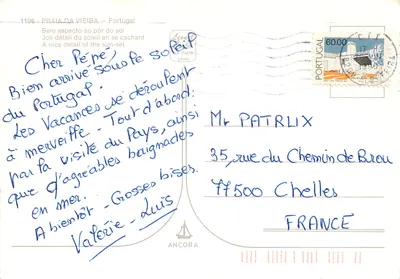 1196 - PRAIA DA VIEIRA - Portugal
Belo aspecto do pôr do sol
Joli détail du soleil en se cachant
A nice detail of the sun-set
Cher Pépé,
Bien arrivé sous le soleil
du Portugal.
Les Vacances se déroulent
à merveille - Tout d'abord
par la visite du Pays, ainsi
que d'agréables baignades
en mer.
A bientôt - Grosses bises.
Valérie - Luis
PORTUGAL
60.00
Mr PATRUX
35, rue du Chemin de
77500 Chelles
FRANCE
ANCORA